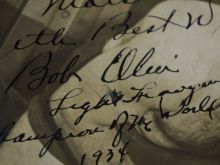 the Best W
Bob Olin
Light Heavyw
Champion of the World
1934